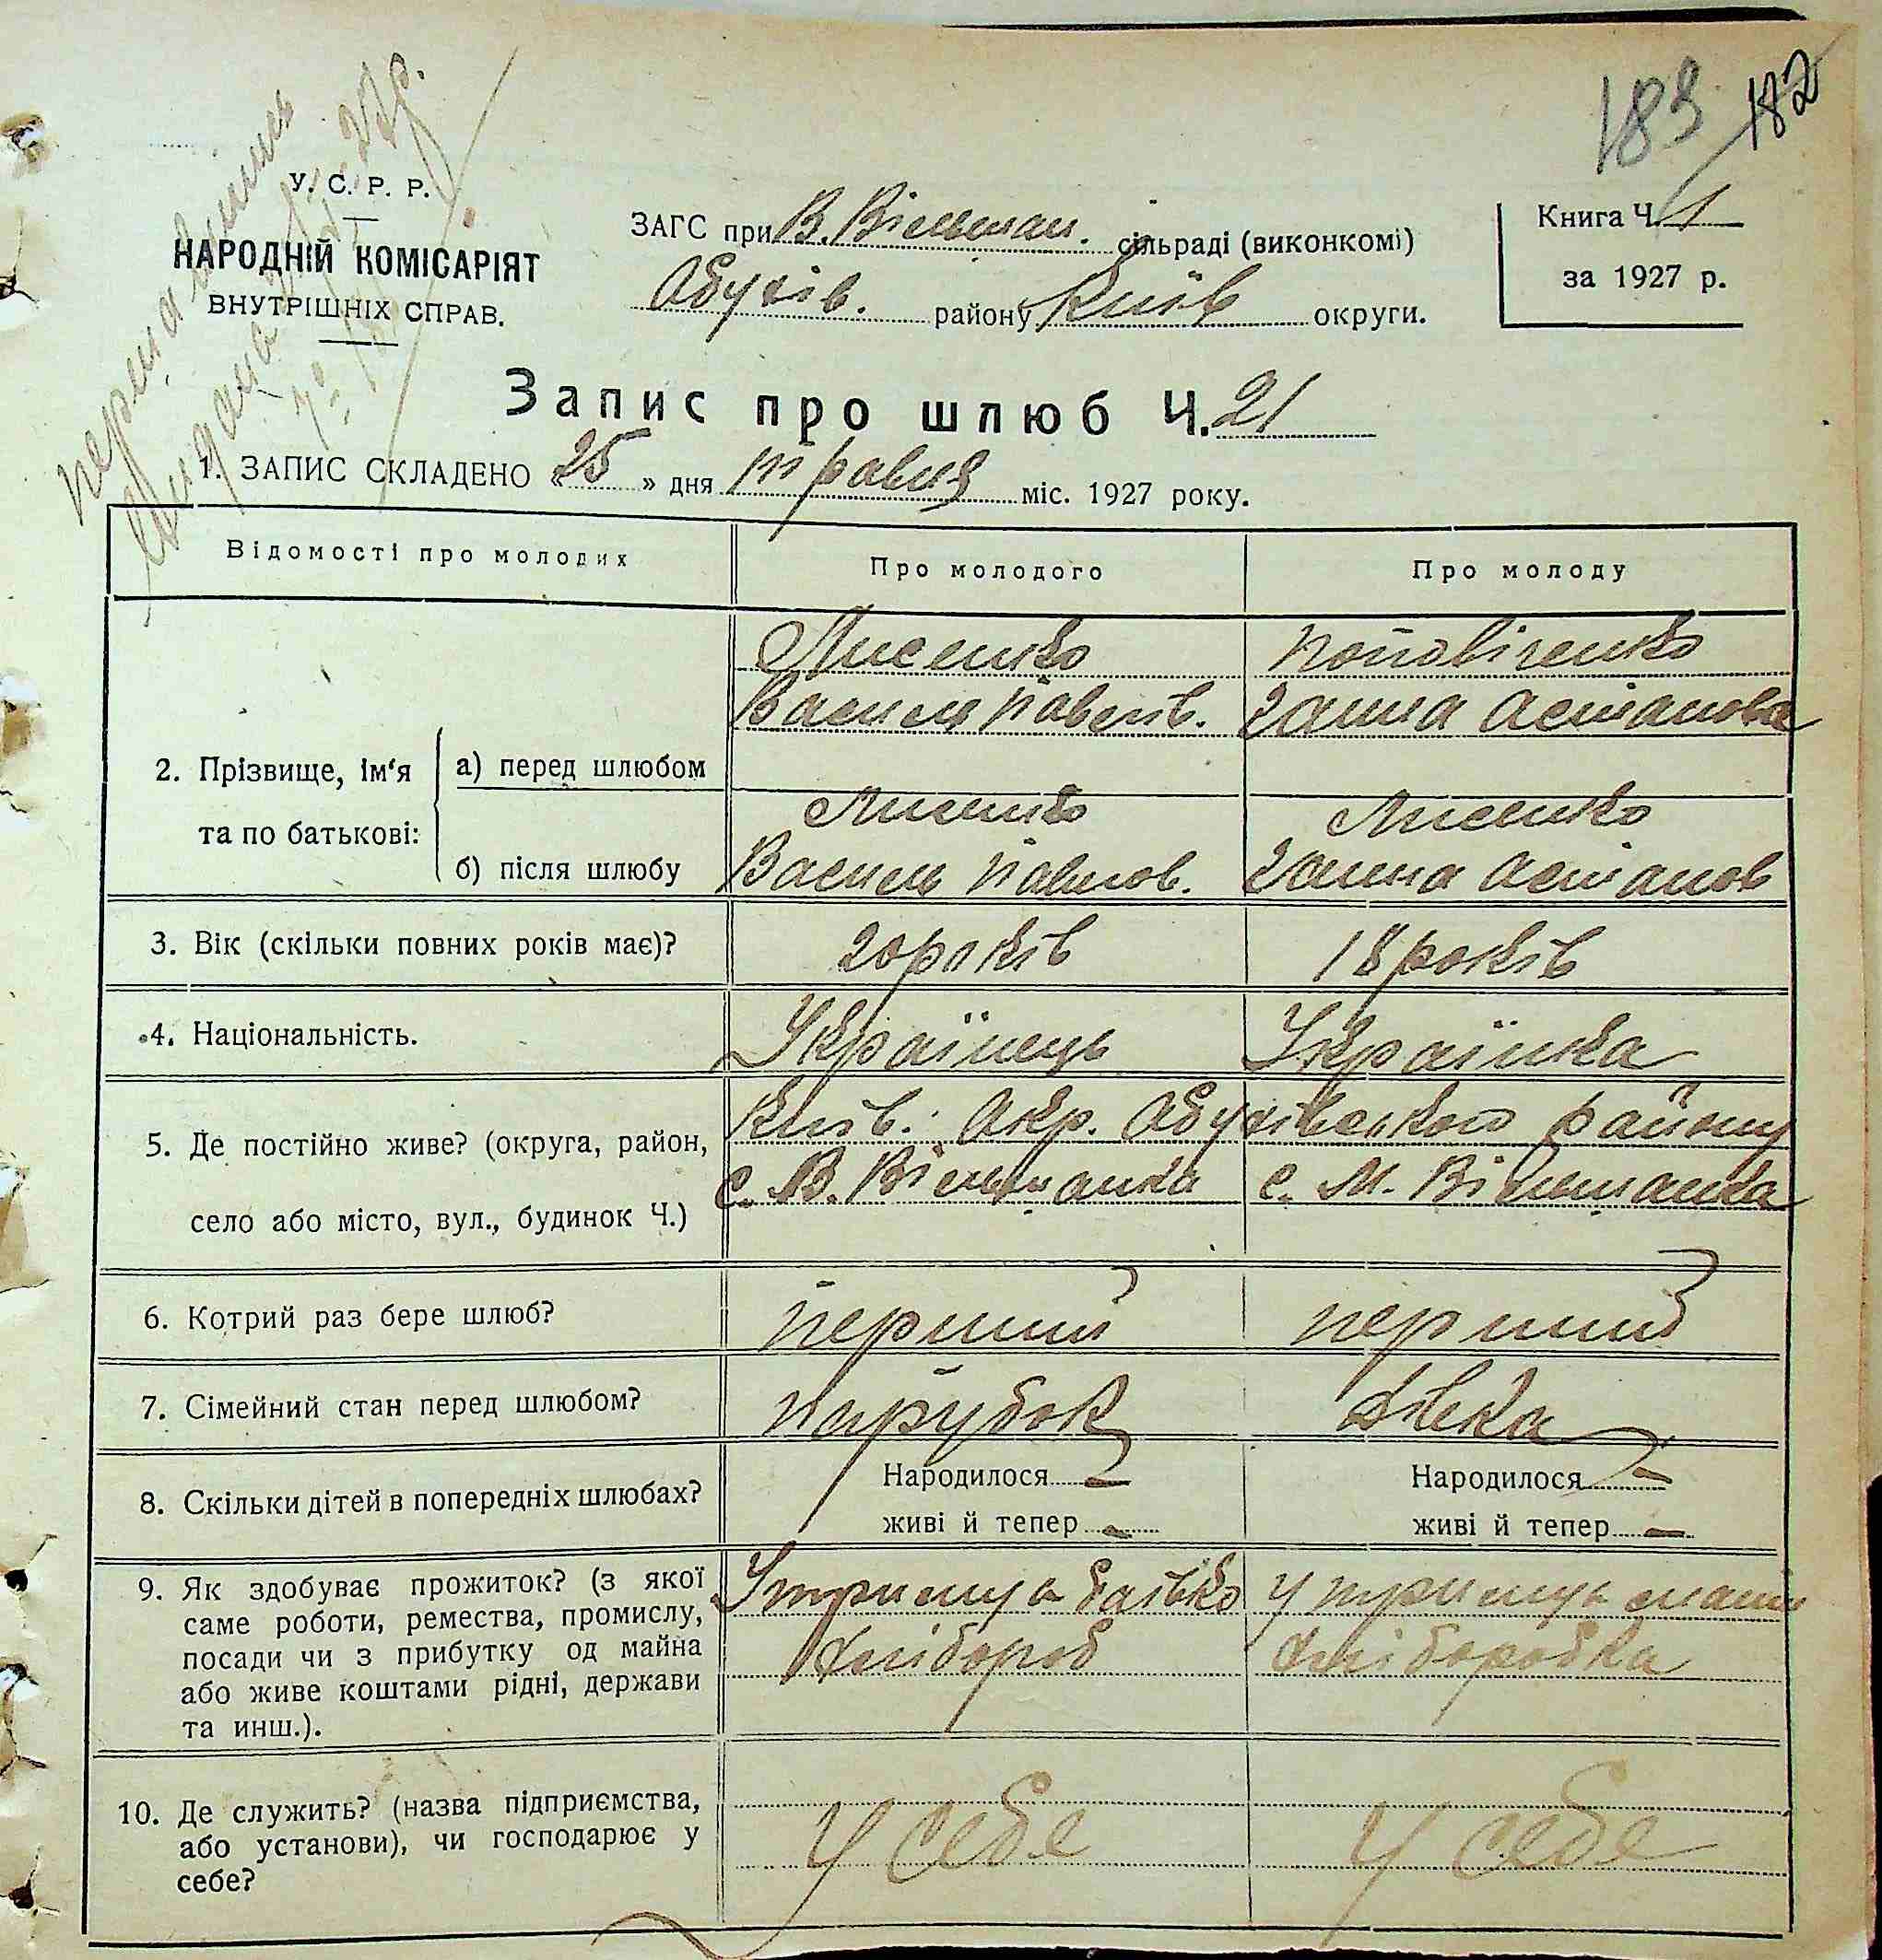 183 182
У. С. Р. Р.
НАРОДНІЙ КОМІСАРІЯТ
ВНУТРІШНІХ СПРАВ.
ЗАГС при В. Вільшан. сільраді (виконкомі)
Обухів. району Київ округи.
Книга Ч. 1
за 1927 р.
перша випись
Видана
Запис про шлюб Ч. 21
1. ЗАПИС СКЛАДЕНО «25» дня травня міс. 1927 року.
Відомості про молодих
Про молодого
Про молоду
2. Прізвище, ім'я та по батькові:
а) перед шлюбом
Лисенко
Василь Павлов.
Поповіченко
Ганна Астапова
б) після шлюбу
Лисенко
Василь Павлов.
Лисенко
Ганна Астапов
3. Вік (скільки повних років має)?
20 років
18 років
4. Національність.
Українець
Українка
5. Де постійно живе? (округа, район,
село або місто, вул., будинок Ч.)
Київ. Окр. Обухівського району
с. В. Вільшанка
с. М. Вільшанка
6. Котрий раз бере шлюб?
перший
перший
7. Сімейний стан перед шлюбом?
парубок
дівка
8. Скільки дітей в попередніх шлюбах?
Народилося —
живі й тепер —
Народилося —
живі й тепер —
9. Як здобуває прожиток? (з якої
саме роботи, ремества, промислу,
посади чи з прибутку од майна
або живе коштами рідні, держави
та инш.).
Утримує батько
хлібороб
утримує мати
хліборобка
10. Де служить? (назва підприємства,
або установи), чи господарює у
себе?
у себе
у себе